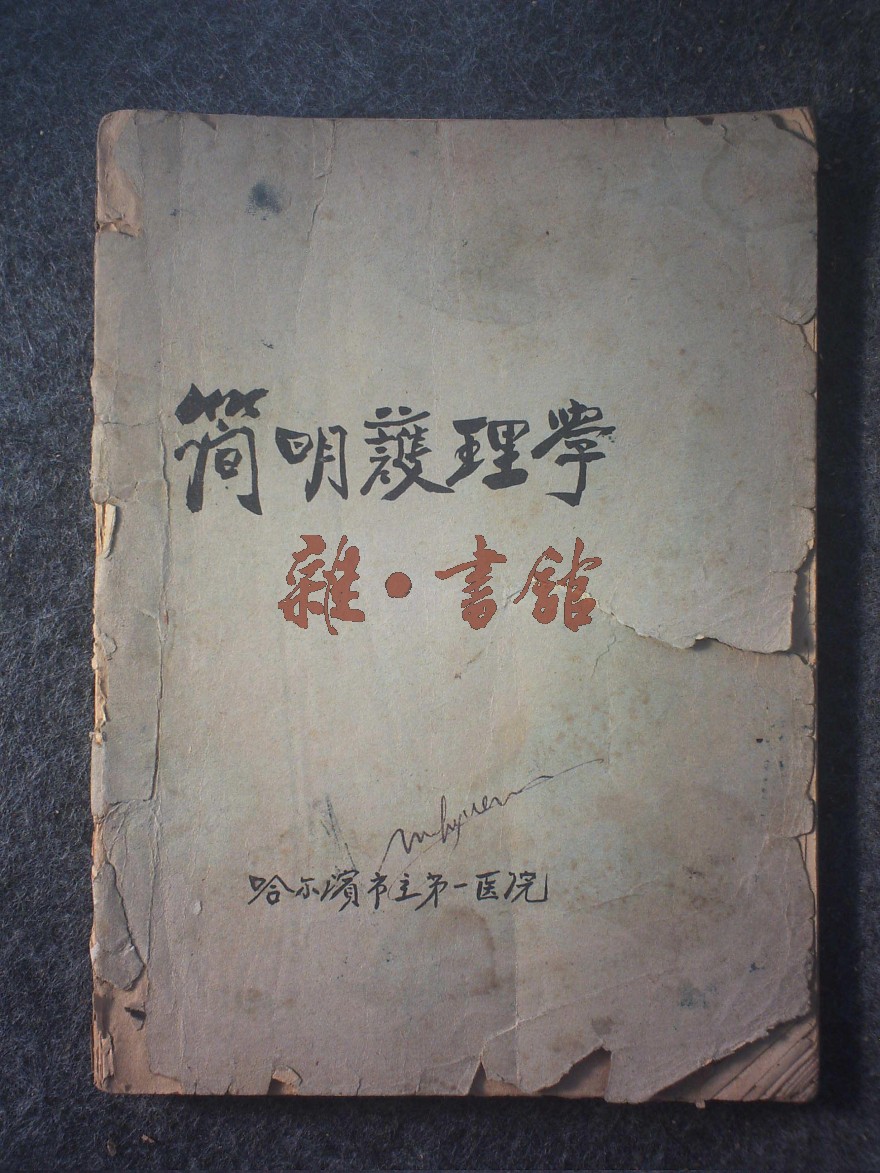 简明護理学
雜·書館
哈尔濱市立第一医院